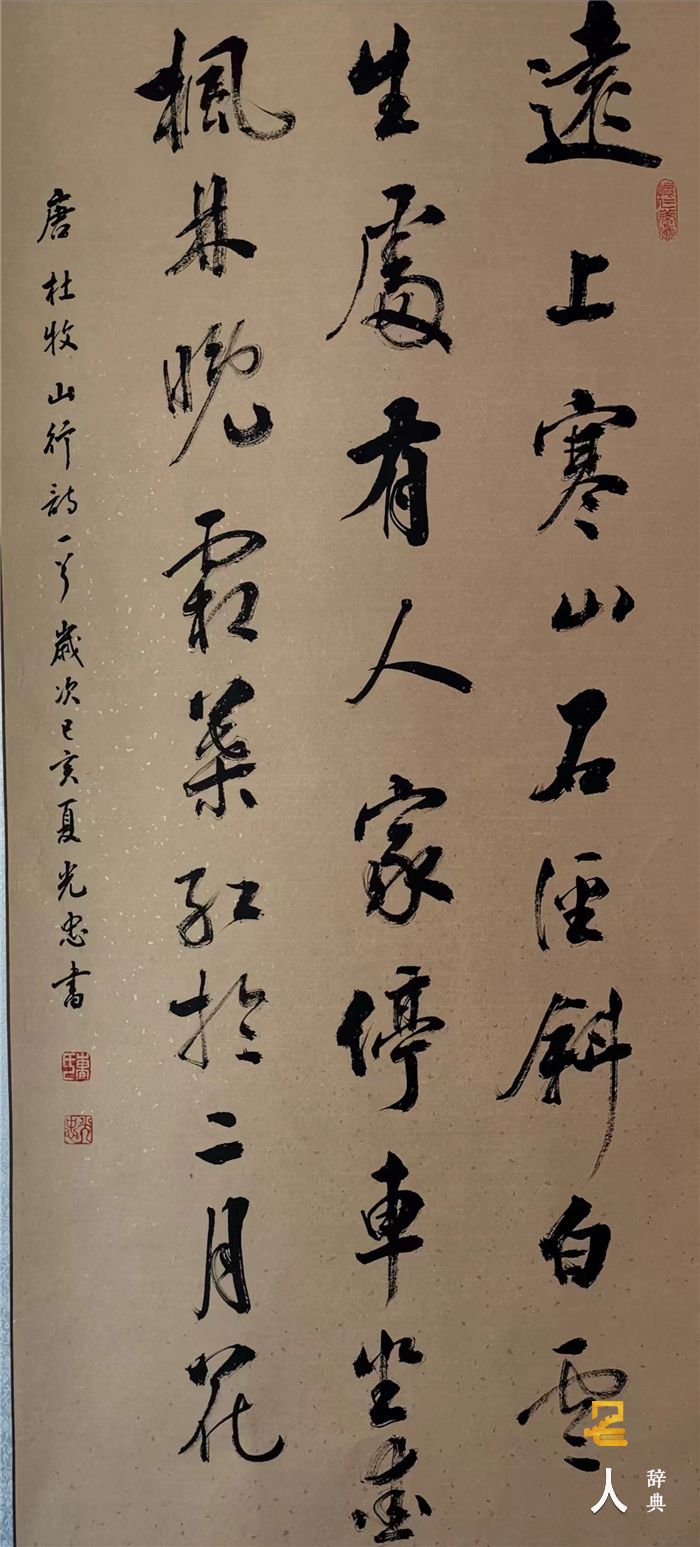 遠上寒山石徑斜白雲
生處有人家停車坐愛
楓林晚霜葉紅於二月花
唐杜牧山行詩一首歲次己亥夏光忠書
光忠
名人
辞典